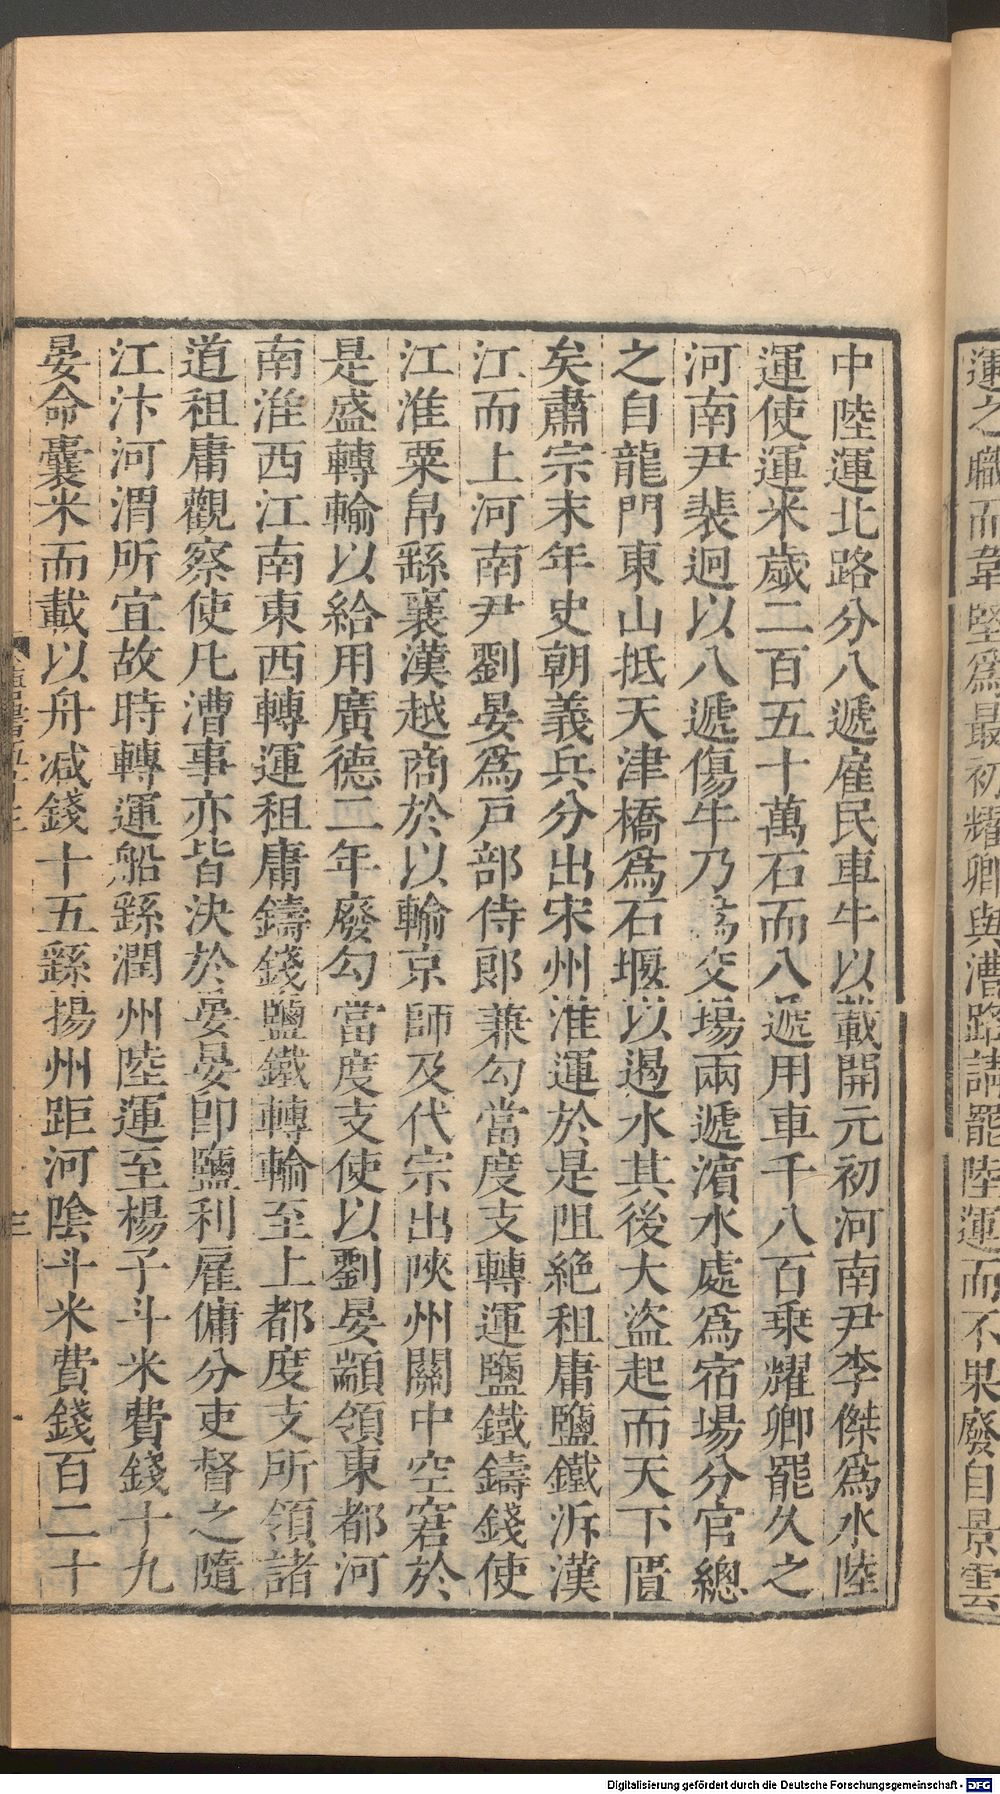 運之職而韋堅爲最初耀卿與漕路請罷陸運而不果廢自景雲
中陸運北路分八遞雇民車牛以載開元初河南尹李傑爲水陸
運使運米歲二百五十萬石而八遞用車千八百乘耀卿罷久之
河南尹裴迥以八遞傷牛乃爲交場兩遞濵水處爲宿場分官總
之自龍門東山抵天津橋爲石堰以遏水其後大盜起而天下匱
矣肅宗末年史朝義兵分出宋州淮運於是阻絶租庸鹽鐵泝漢
江而上河南尹劉晏爲戸部侍郎兼勾當度支轉運鹽鐵鑄錢使
江淮粟帛繇襄漢越商於以輸京師及代宗出陝州關中空窘於
是盛轉輸以給用廣德二年廢勾當度支使以劉晏顓領東都河
南淮西江南東西轉運租庸鑄錢鹽鐵轉輸至上都度支所領諸
道租庸觀察使凡漕事亦皆決於晏晏即鹽利雇傭分吏督之隨
江汴河渭所宜故時轉運船繇潤州陸運至楊子斗米費錢十九
晏命囊米而載以舟減錢十五繇揚州距河陰斗米費錢百二十
三
Digitalisierung gefördert durch die Deutsche Forschungsgemeinschaft - DFG